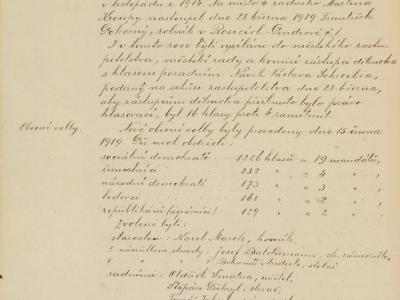 v listopadu r. 1916. Na místo radního Martina
Kroupy nastoupil dne 28. března 1919 František
Doborný, rolník v Kosicích
I v tomto roce byli vysíláni do městského zastu-
pitelstva, městské rady a komisí zástupci dělnictva
s hlasem poradním. Návrh Václava
podaný na schůzi zastupitelstva dne 28. března,
aby zástupcům dělnictva přiřknuto bylo právo
hlasovací, byl 16 hlasy proti 4 zamítnut.
Obecní volby.
Nové obecní volby byly provedeny dne 15. června
1919. Při nich obdrželi:
sociální demokraté ... 1226 hlasů a 19 mandátů,
živnostníci 232 " " 4 " ,
národní demokraté 173 " " 3 " ,
lidovci 162 " " 2 " ,
republikáni (agrárníci) 129 " " 2 " .
Zvoleni byli:
starostou: Karel Marek, horník,
I. náměstkem starosty: Josef
II. " " Bohumil
radními: Oldřich Smatra, učitel,
Štěpán Dubský,